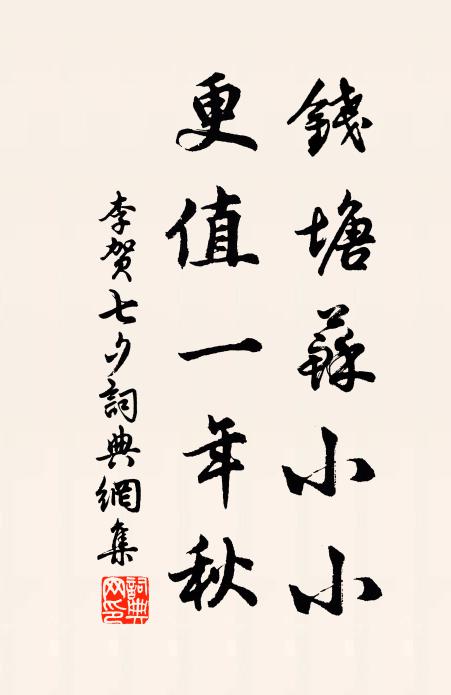 錢塘蘇小小
更值一年秋
李賀七夕詞典網集
詞典网印